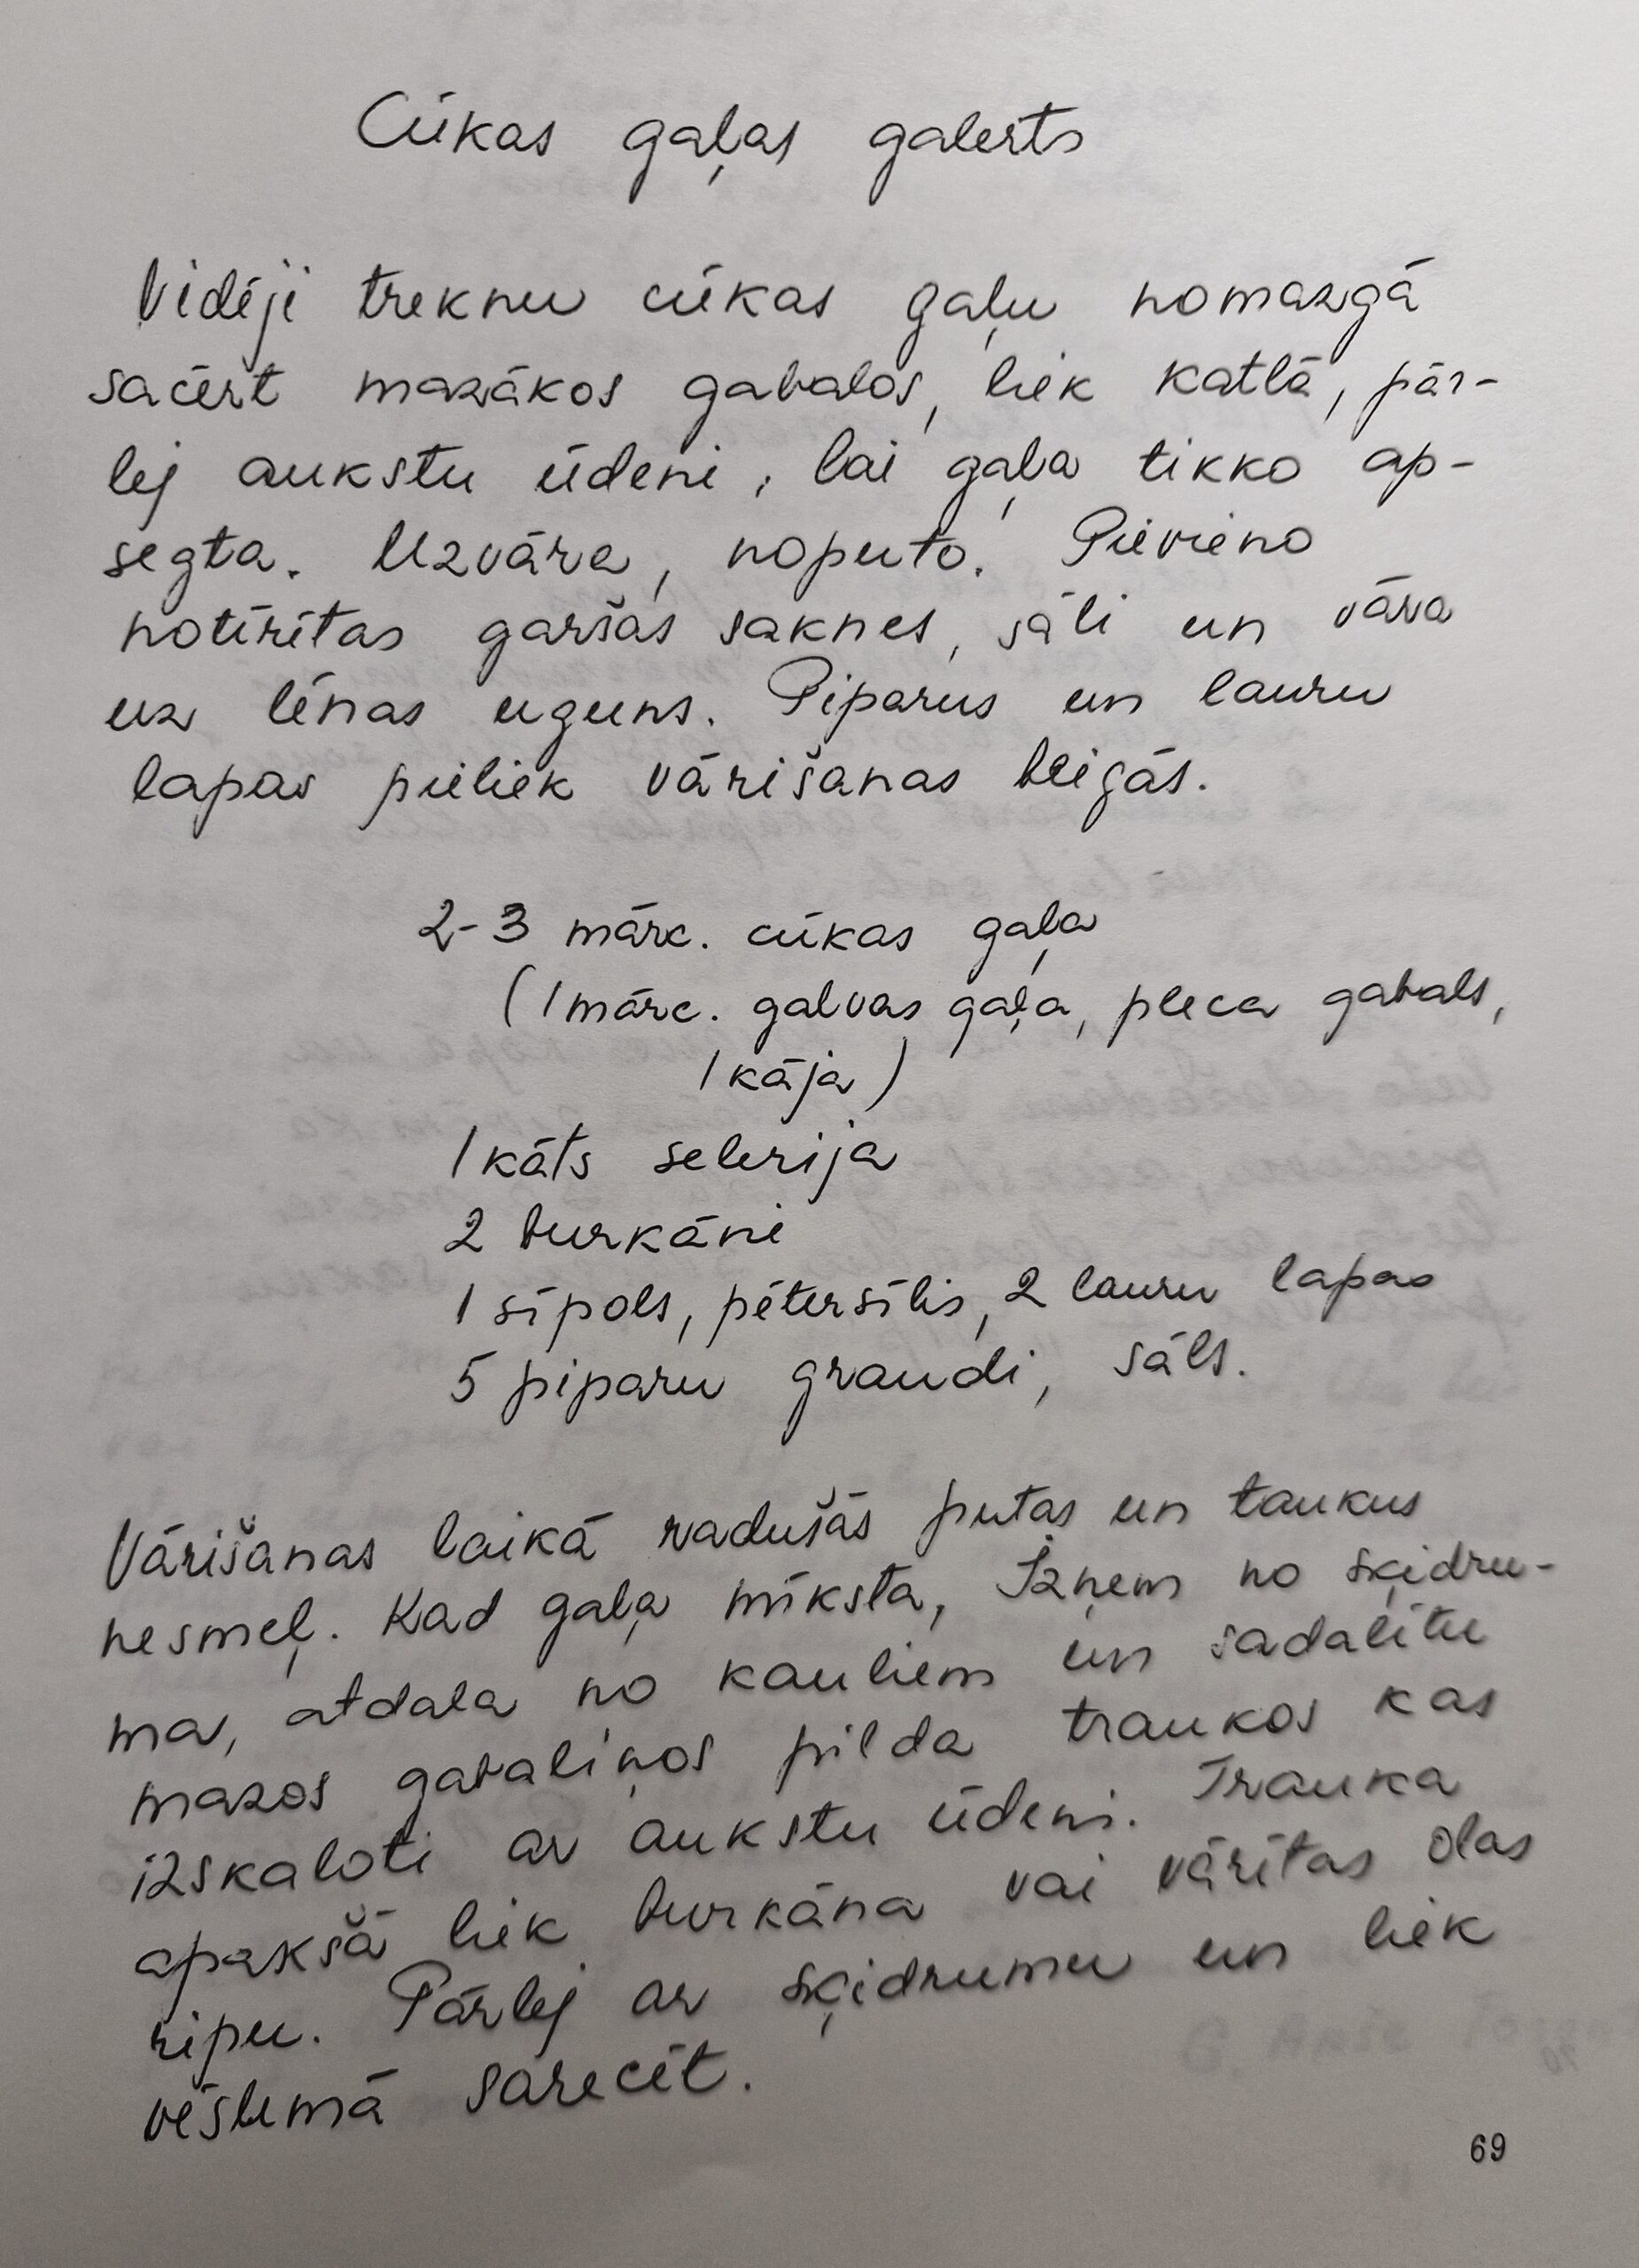 Cūkas gaļas galerts
Vidēji treknu cūkas gaļu nomazgā
sacērt mazākos gabalos, liek katlā, pār-
lej aukstu ūdeni, lai gaļa tikko ap-
segta. Uzvāra, noputo. Pievieno
notīrītas garšas saknes, sāli un vāra
uz lēnas uguns. Piparus un lauru
lapas pieliek vārišanas beigās.
2-3 mārc. cūkas gaļa
(1 mārc. galvas gaļa, pleca gabals,
1 kāja)
1 kāts selerija
2 burkāni
1 sīpols, pētersīlis, 2 lauru lapas
5 piparu graudi, sāls.
Vārišanas laikā radušās putas un taukus
nesmeļ. Kad gaļa mīksta, Izņem no šķidru-
ma, atdala no kauliem un sadalītu
mazos gabaliņos pilda traukos kas
izskaloti ar aukstu ūdeni. Trauka
apakšā liek burkāna vai vārītas olas
ripu. Pārlej ar šķidrumu un liek
vēsumā sarecēt.
69